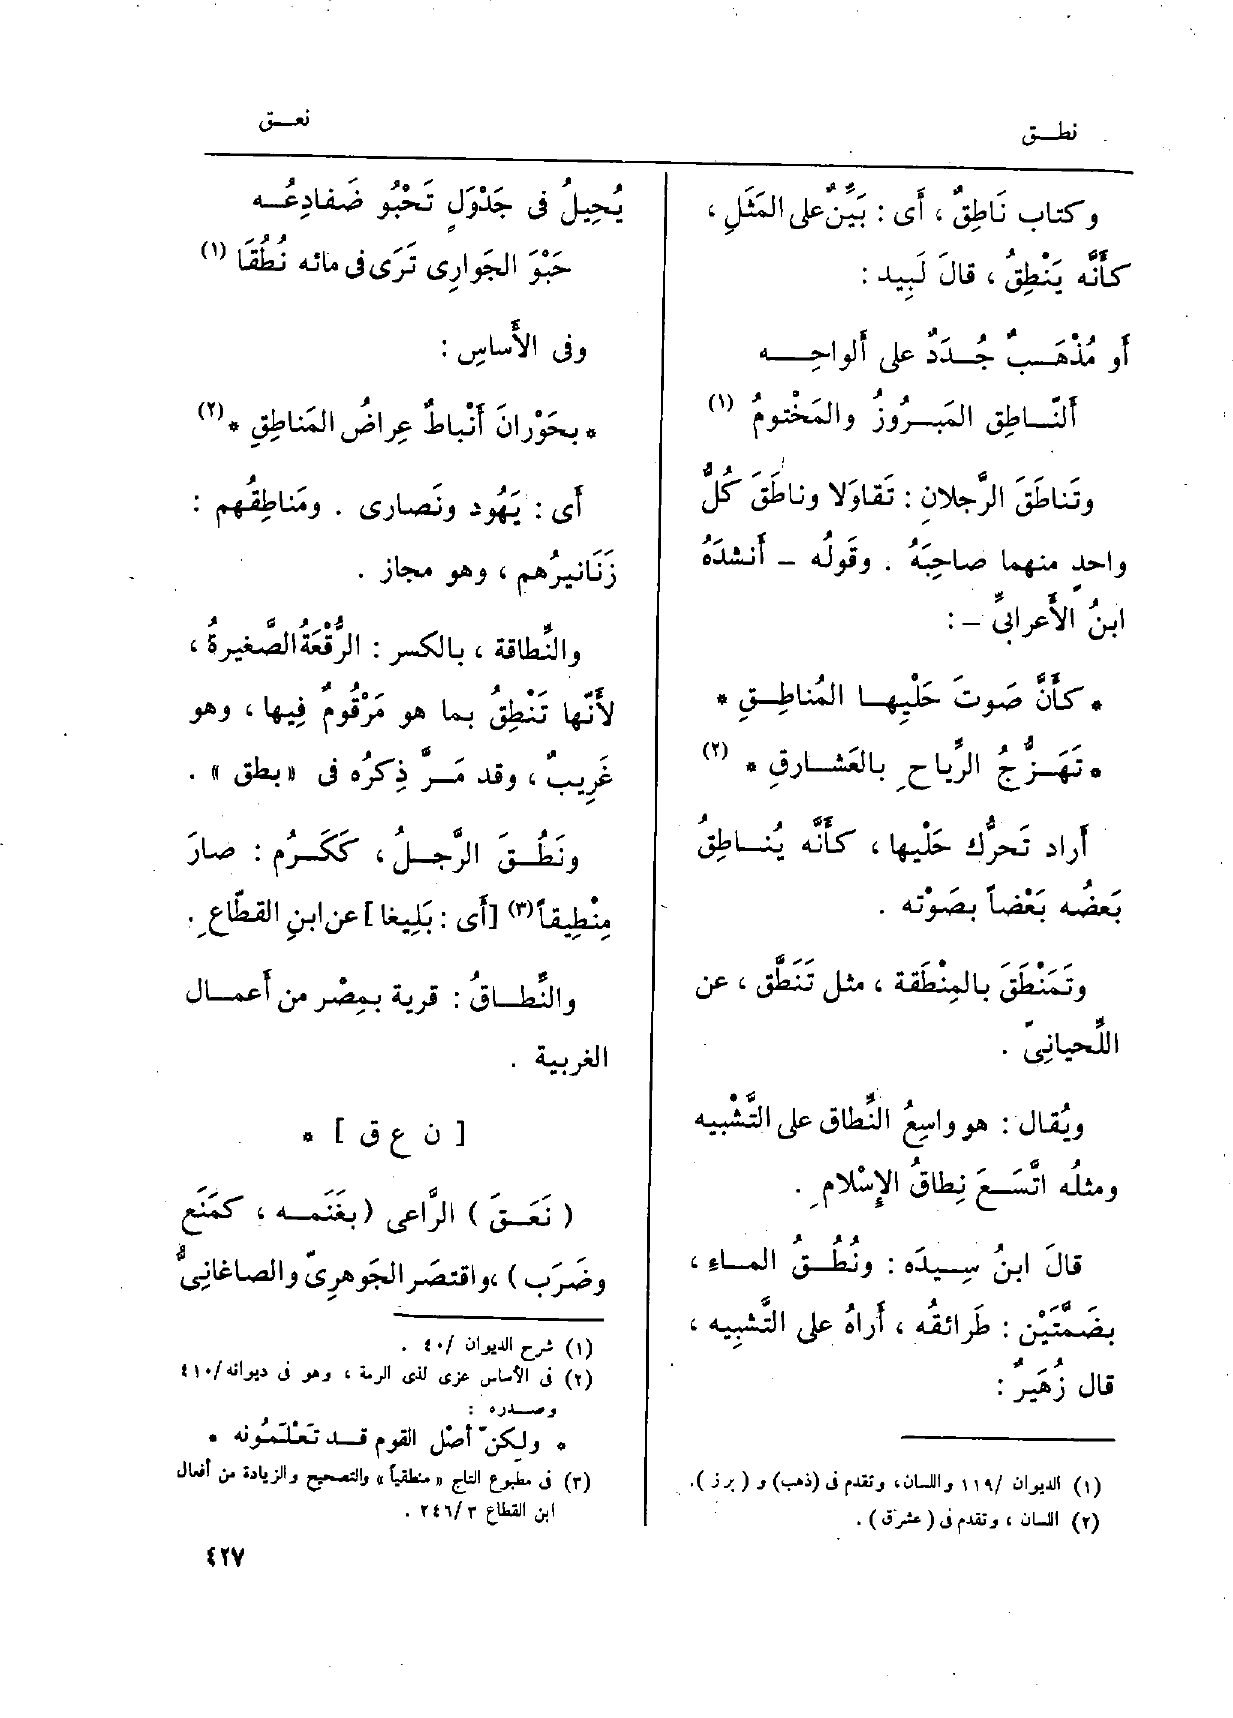 نطـق
نعـق
وكتاب نَاطِقٌ ، أَى : بَيِّنٌ على المَثَلِ ،
كأَنَّه يَنْطِقُ ، قالَ لَبِيد :
أو مُذْهَـبٌ جُـدَدٌ على أَلواحِـــه
أَلنَّـاطِق المَبـرُوزُ والمَخْتومُ (١)
وتَناطَقَ الرَّجلانِ : تَقاوَلا وناطَقَ كُلُّ
واحدٍ منهما صاحِبَهُ . وقَولُه – أَنشدَهُ
ابنُ الأَعرابىِّ – :
* كأَنَّ صَوتَ حَلْيِهـا المُناطِـقِ *
* تَهَـزُّجُ الرِّياحِ بالعَشـارِقِ * (٢)
أَراد تَحرُّك حَلْيها ، كأَنَّه يُنـاطِقُ
بَعضُه بَعْضاً بصَوْته .
وتَمَنْطَقَ بالمِنْطَقة ، مثل تَنَطَّق ، عن
اللِّحيانِىّ .
ويُقال : هو واسِعُ النِّطاق على التَّشْبيه
ومثلُه اتَّسَـعَ نِطاقُ الإِسْلامِ .
قالَ ابنُ سِـيدَه : ونُطُـقُ المـاء ،
بضَمَّتَيْن : طَرائقُه ، أَراهُ على التَّشبِيه ،
قال زُهَيرٌ :
(١) الديوان /١١٩ واللسان، وتقدم فى (ذهب) و (برز).
(٢) اللسان ، وتقدم فى (عشرق) .
يُحِيلُ فى جَدْوَلٍ تَحْبُو ضَفادِعُـه
حَبْوَ الجَوارِى تَرَى فى مائه نُطُقَا (١)
وفى الأَساسِ :
* بحَوْرانَ أَنْباطٌ عِراضُ المَناطِقِ * (٢)
أَى : يَهُود ونَصارى . ومَناطِقُهم :
زَنَانيرُهم ، وهو مجاز .
والنِّطاقة ، بالكسر : الرُّقْعَةُ الصَّغيرةُ ،
لأَنَّها تَنْطِقُ بما هو مَرْقُومٌ فِيها ، وهو
غَرِيبٌ ، وقد مَـرَّ ذِكرُه فى «بطق» .
ونَطُـقَ الرَّجـلُ ، كَكَـرُم : صارَ
مِنْطِيقاً (٣) [أَى : بَلِيغا] عن ابنِ القطّاعِ .
والنِّطـاقُ : قرية بمِصْر من أَعمـال
الغربية .
[ ن ع ق ] *
( نَعَـقَ ) الرَّاعى (بغَنَمـه ، كمَنَع
وضَرَب ) ، واقتصَر الجَوهرِىّ والصاغانِىُّ
(١) شرح الديوان /٤٠ .
(٢) فى الأساس عزى لذى الرمة ، وهو فى ديوانه /٤١٠
وصـدره :
* ولكنّ أصْل القوم قـد تَعْلَمُونه *
(٣) فى مطبوع التاج « منطقياً » والتصحيح والزيادة من أفعال
ابن القطاع ٣/٢٤٦ .
٤٢٧